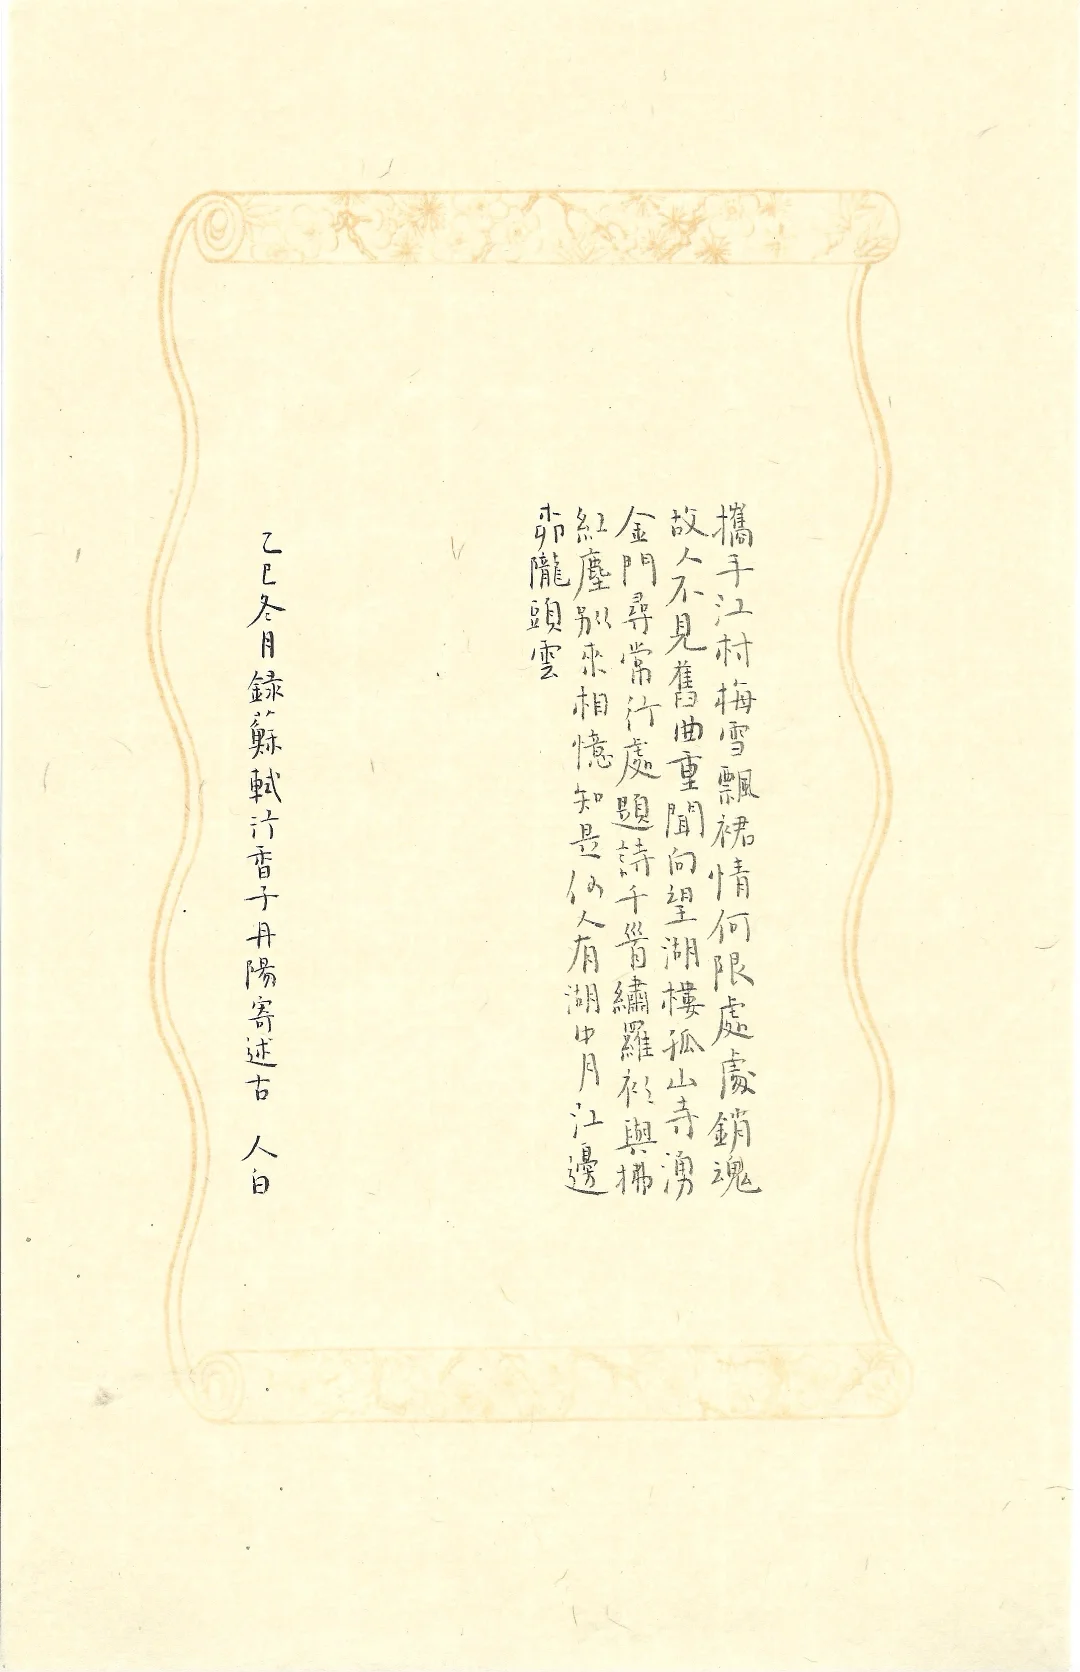 攜手江村梅雪飄裙情何限處處銷魂
故人不見舊曲重聞向望湖樓孤山寺湧
金門尋常行處題詩千首繡羅衫與拂
紅塵別來相憶知是何人有湖中月江邊
柳隴頭雲
乙巳冬月錄蘇軾行香子丹陽寄述古 人白